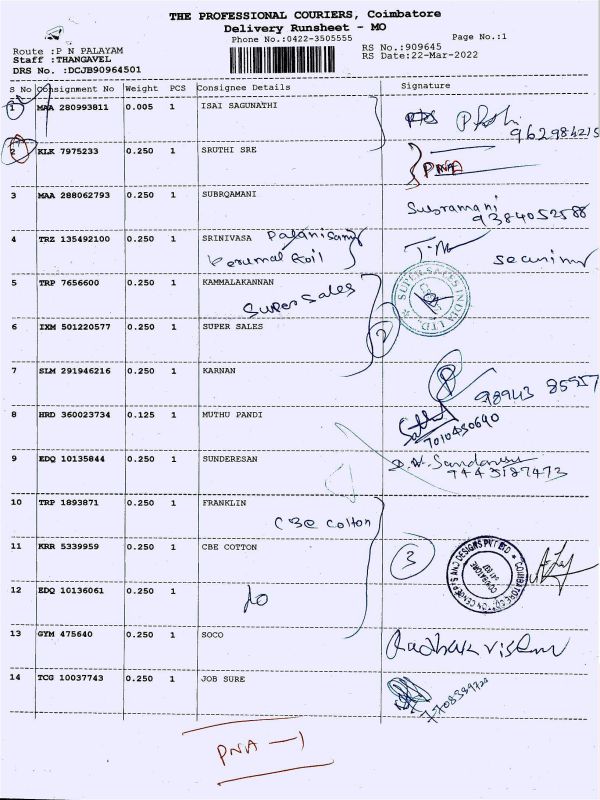 THE PROFESSIONAL COURIERS, Coimbatore
Delivery Runsheet - MO
Phone No.:0422-3505555
Page No.:1
Route :P N PALAYAM
Staff :THANGAVEL
DRS No. :DCJB90964501
RS No.:909645
RS Date:22-Mar-2022
S No Consignment No Weight PCS Consignee Details Signature
1 MAA 280993811 0.005 1 ISAI SAGUNATHI
2 KLK 7975233 0.250 1 SRUTHI SRE PNA
3 MAA 288062793 0.250 1 SUBRQAMANI Subramani
9384052588
4 TRZ 135492100 0.250 1 SRINIVASA Palanisamy
Perumal Koil
5 TRP 7656600 0.250 1 KAMMALAKANNAN
Super Sales
SUPER SALES INDIA LTD
2
6 IXM 501220577 0.250 1 SUPER SALES
7 SLM 291946216 0.250 1 KARNAN
98943 85957
8 HRD 360023734 0.125 1 MUTHU PANDI
7010450690
9 EDQ 10135844 0.250 1 SUNDERESAN
9443187473
10 TRP 1893871 0.250 1 FRANKLIN
CBE Cotton
11 KRR 5339959 0.250 1 CBE COTTON
3
12 EDQ 10136061 0.250 1
do
13 GYM 475640 0.250 1 SOCO
14 TCG 10037743 0.250 1 JOB SURE
PNA - 1